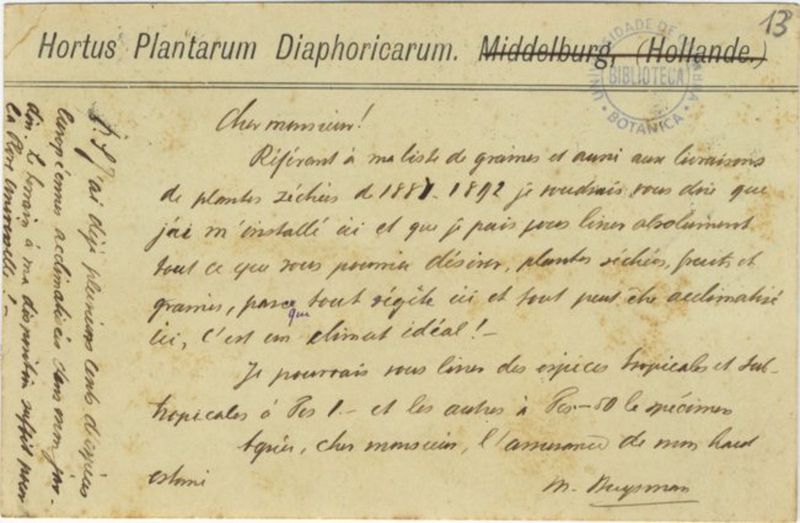 13
Hortus Plantarum Diaphoricarum. Middelburg, (Hollande.)
BIBLIOTECA
BOTANICA
Cher monsieur!
Référant à ma liste de graines et aussi aux livraisons
de plantes séchées de 1887-1892 je voudrais vous dire que
j'ai m'installé ici et que je puis vous livrer absolument
tout ce que vous pourriez désirer, plantes séchées, fruits et
graines, parce que tout végète ici et tout peut être acclimatisé
ici, c'est un climat idéal! -
Je pourrais vous livrer des espèces tropicales et sub-
tropicales à Pes 1.- et les autres à Pes -50 le spécimen
Agréez, cher monsieur, l'assurance de mon haut
estime
M. Buysman
P.S. J'ai déjà plusieurs cents d'espèces
européennes acclimatisées dans mon jar-
din. Le terrain à ma disposition suffit pour
la Flore universelle! -